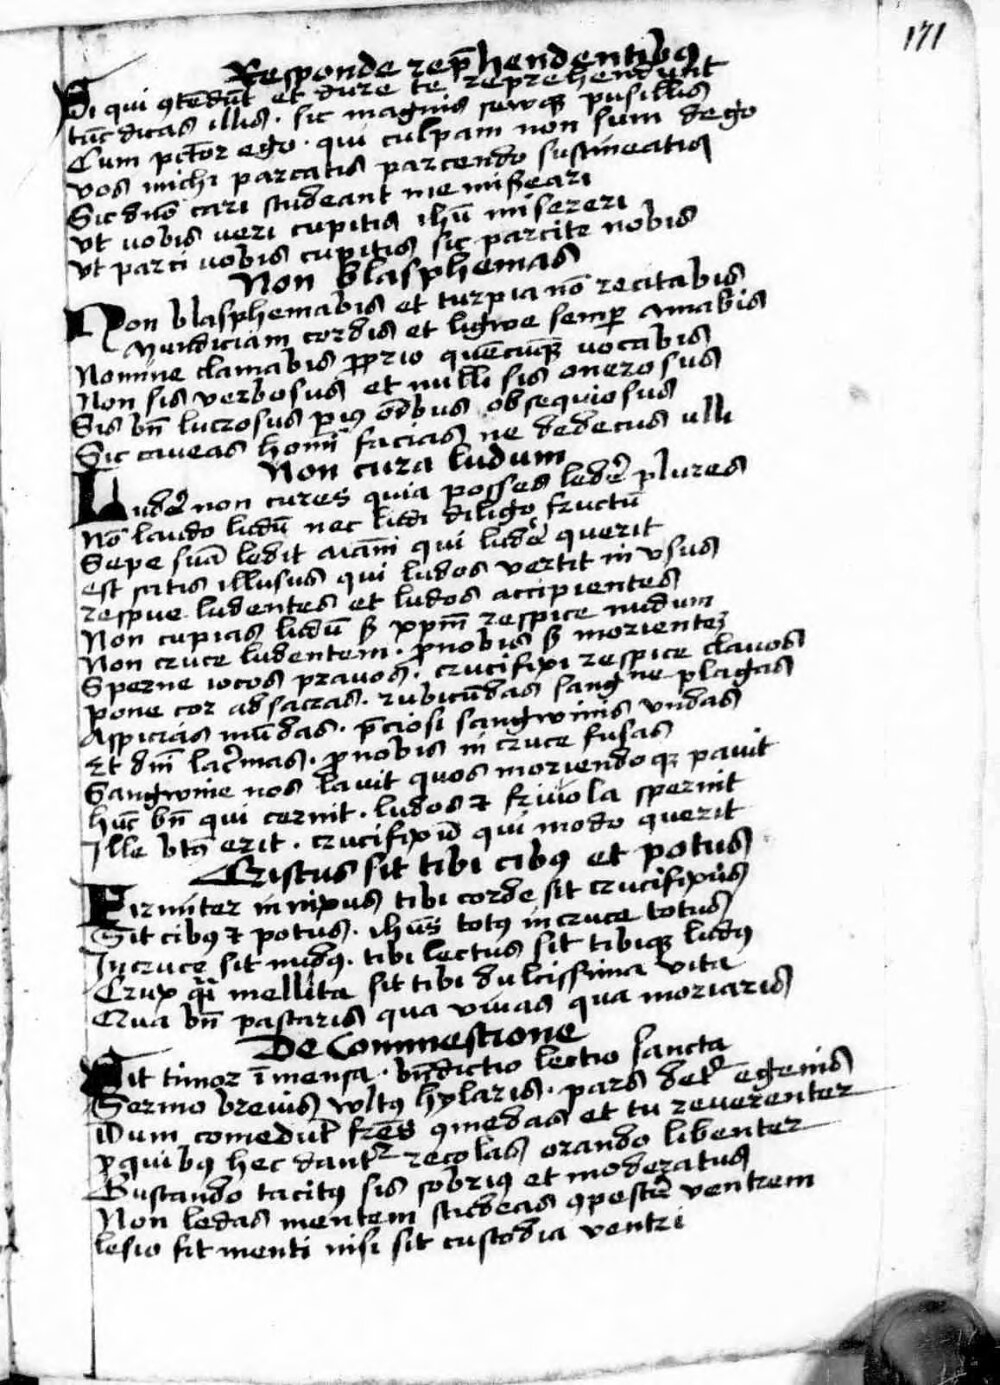 171
Responde rep̄hendentibꝰ
Si qui ꝯtēdūt et dure te reprehendunt
tūc dicas illis · sic magnis sewqꝫ pusillis
Cum pctōr ego · qui culpam non sum dego
vos michi parcatis parcendo sustineatis
Sic dn̄o cari studeant me miseari
vt vobis veri cupitis ihū misereri
vt parci vobis cupitis sic parcite nobis
Non blasphemas
Non blasphemabis et turpia nō recitabis
Mundiciam cordis et ligwe semꝑ amabis
Nomine clamabis ꝓprio quēcūqꝫ vocabis
Non sis verbosus et nulli sis onerosus
Sis bn̄ lucrosus piꝰ oībus obsequiosus
Sic caveas homī facias ne dedecus ulli
Non cura ludum
Luder̄ non cures quia posses leder̄ plures
Nō laudo ludū nec ludi diligo fructū
Sepe suā ledit aīam qui luder̄ querit
est satis illusus qui ludos vertit in vsus
respue ludentes et ludos accipientes
Non cupias ludū sꝫ xpm̄ respice nudum
Non cruce ludentem · ꝓ nobis sꝫ morientem
Sperne iocos pravos · crucifixi respice clavos
pone cor ad sacras · rubicūdas sangne plagas
Aspicias mūdas · p̄ciosi sangwinis vndas
Et dn̄i lac̄mas · ꝓ nobis in cruce fusas
Sangwine nos lavit quos moriendo qꝫ pavit
hūc bn̄ qui cernit · ludos ⁊ frivola spernit
Ille btūs erit · crucifixū qui modo querit
Cristus sit tibi cibꝰ et potus
Firmiter in nixus tibi corde sit crucifixus
Sit cibꝰ ⁊ potus · ihūs totꝰ in cruce totus
In cruce sit nudꝰ · tibi lectus sit tibiqꝫ ludꝰ
Crux qͣi mellita sit tibi dulcissima vita
Qua bn̄ pascaris qua vivas qua moriaris
De Commestione
Sit timor ī mensa · bn̄dictio lectio sancta
Sermo brevis vultꝰ hylaris · pars det᷑ egenis
Dum comedūt fr̄es ꝯmedas et tu reverenter
ꝓ quibꝰ hec dant᷑ recolas orando libenter
Gustando tacitꝰ sis sobriꝰ et moderatus
Non ledas mentem studeas ꝯpescer̄ ventrem
lesio fit menti nisi sit custodia ventri